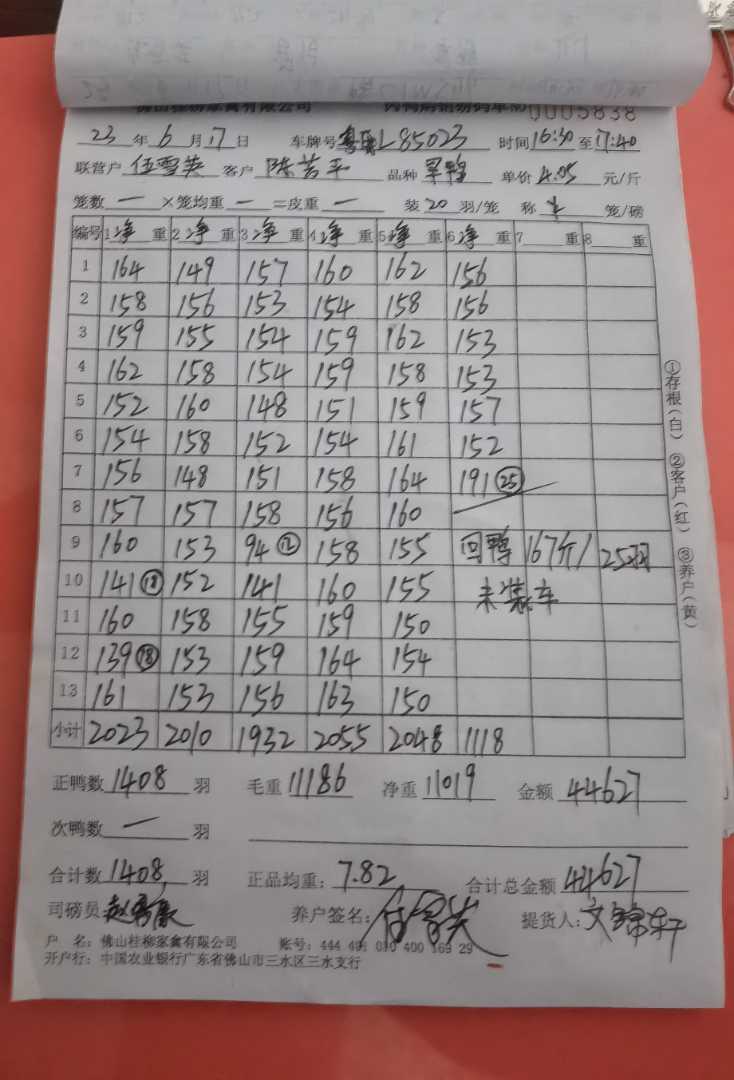 佛山桂柳家禽有限公司 肉鸭购销易码单 № 0005838
23 年 6 月 17 日 车牌号 粤 L85023 时间 16:30 至 17:40
联营户 伍雪英 客户 陈芳平 品种 旱鸭 单价 4.05 元/斤
笼数 一 ×笼均重 一 =皮重 一 装 20 羽/笼 称 笼/磅
编号 1 净 重 2 净 重 3 净 重 4 净 重 5 净 重 6 净 重 7 重 8 重
1 164 149 157 160 162 156
2 158 156 153 154 158 156
3 159 155 154 159 162 153
4 162 158 154 159 158 153
5 152 160 148 151 159 157
6 154 158 152 154 161 152
7 156 148 151 158 164 191 25
8 157 157 158 156 160
9 160 153 94 12 158 155 回鸭 167斤/25羽
10 141 18 152 141 160 155 未装车
11 160 158 155 159 150
12 139 18 153 159 164 154
13 161 153 156 163 150
小计 2023 2010 1932 2055 2048 1118
①存根(白) ②客户(红) ③养户(黄)
正鸭数 1408 羽 毛重 11186 净重 11019 金额 44627
次鸭数 一 羽
合计数 1408 羽 正品均重: 7.82 合计总金额 44627
司磅员 养户签名: 伍雪英 提货人: 文锦轩
户 名: 佛山桂柳家禽有限公司 账号: 444 400 169 29
开户行: 中国农业银行广东省佛山市三水区三水支行